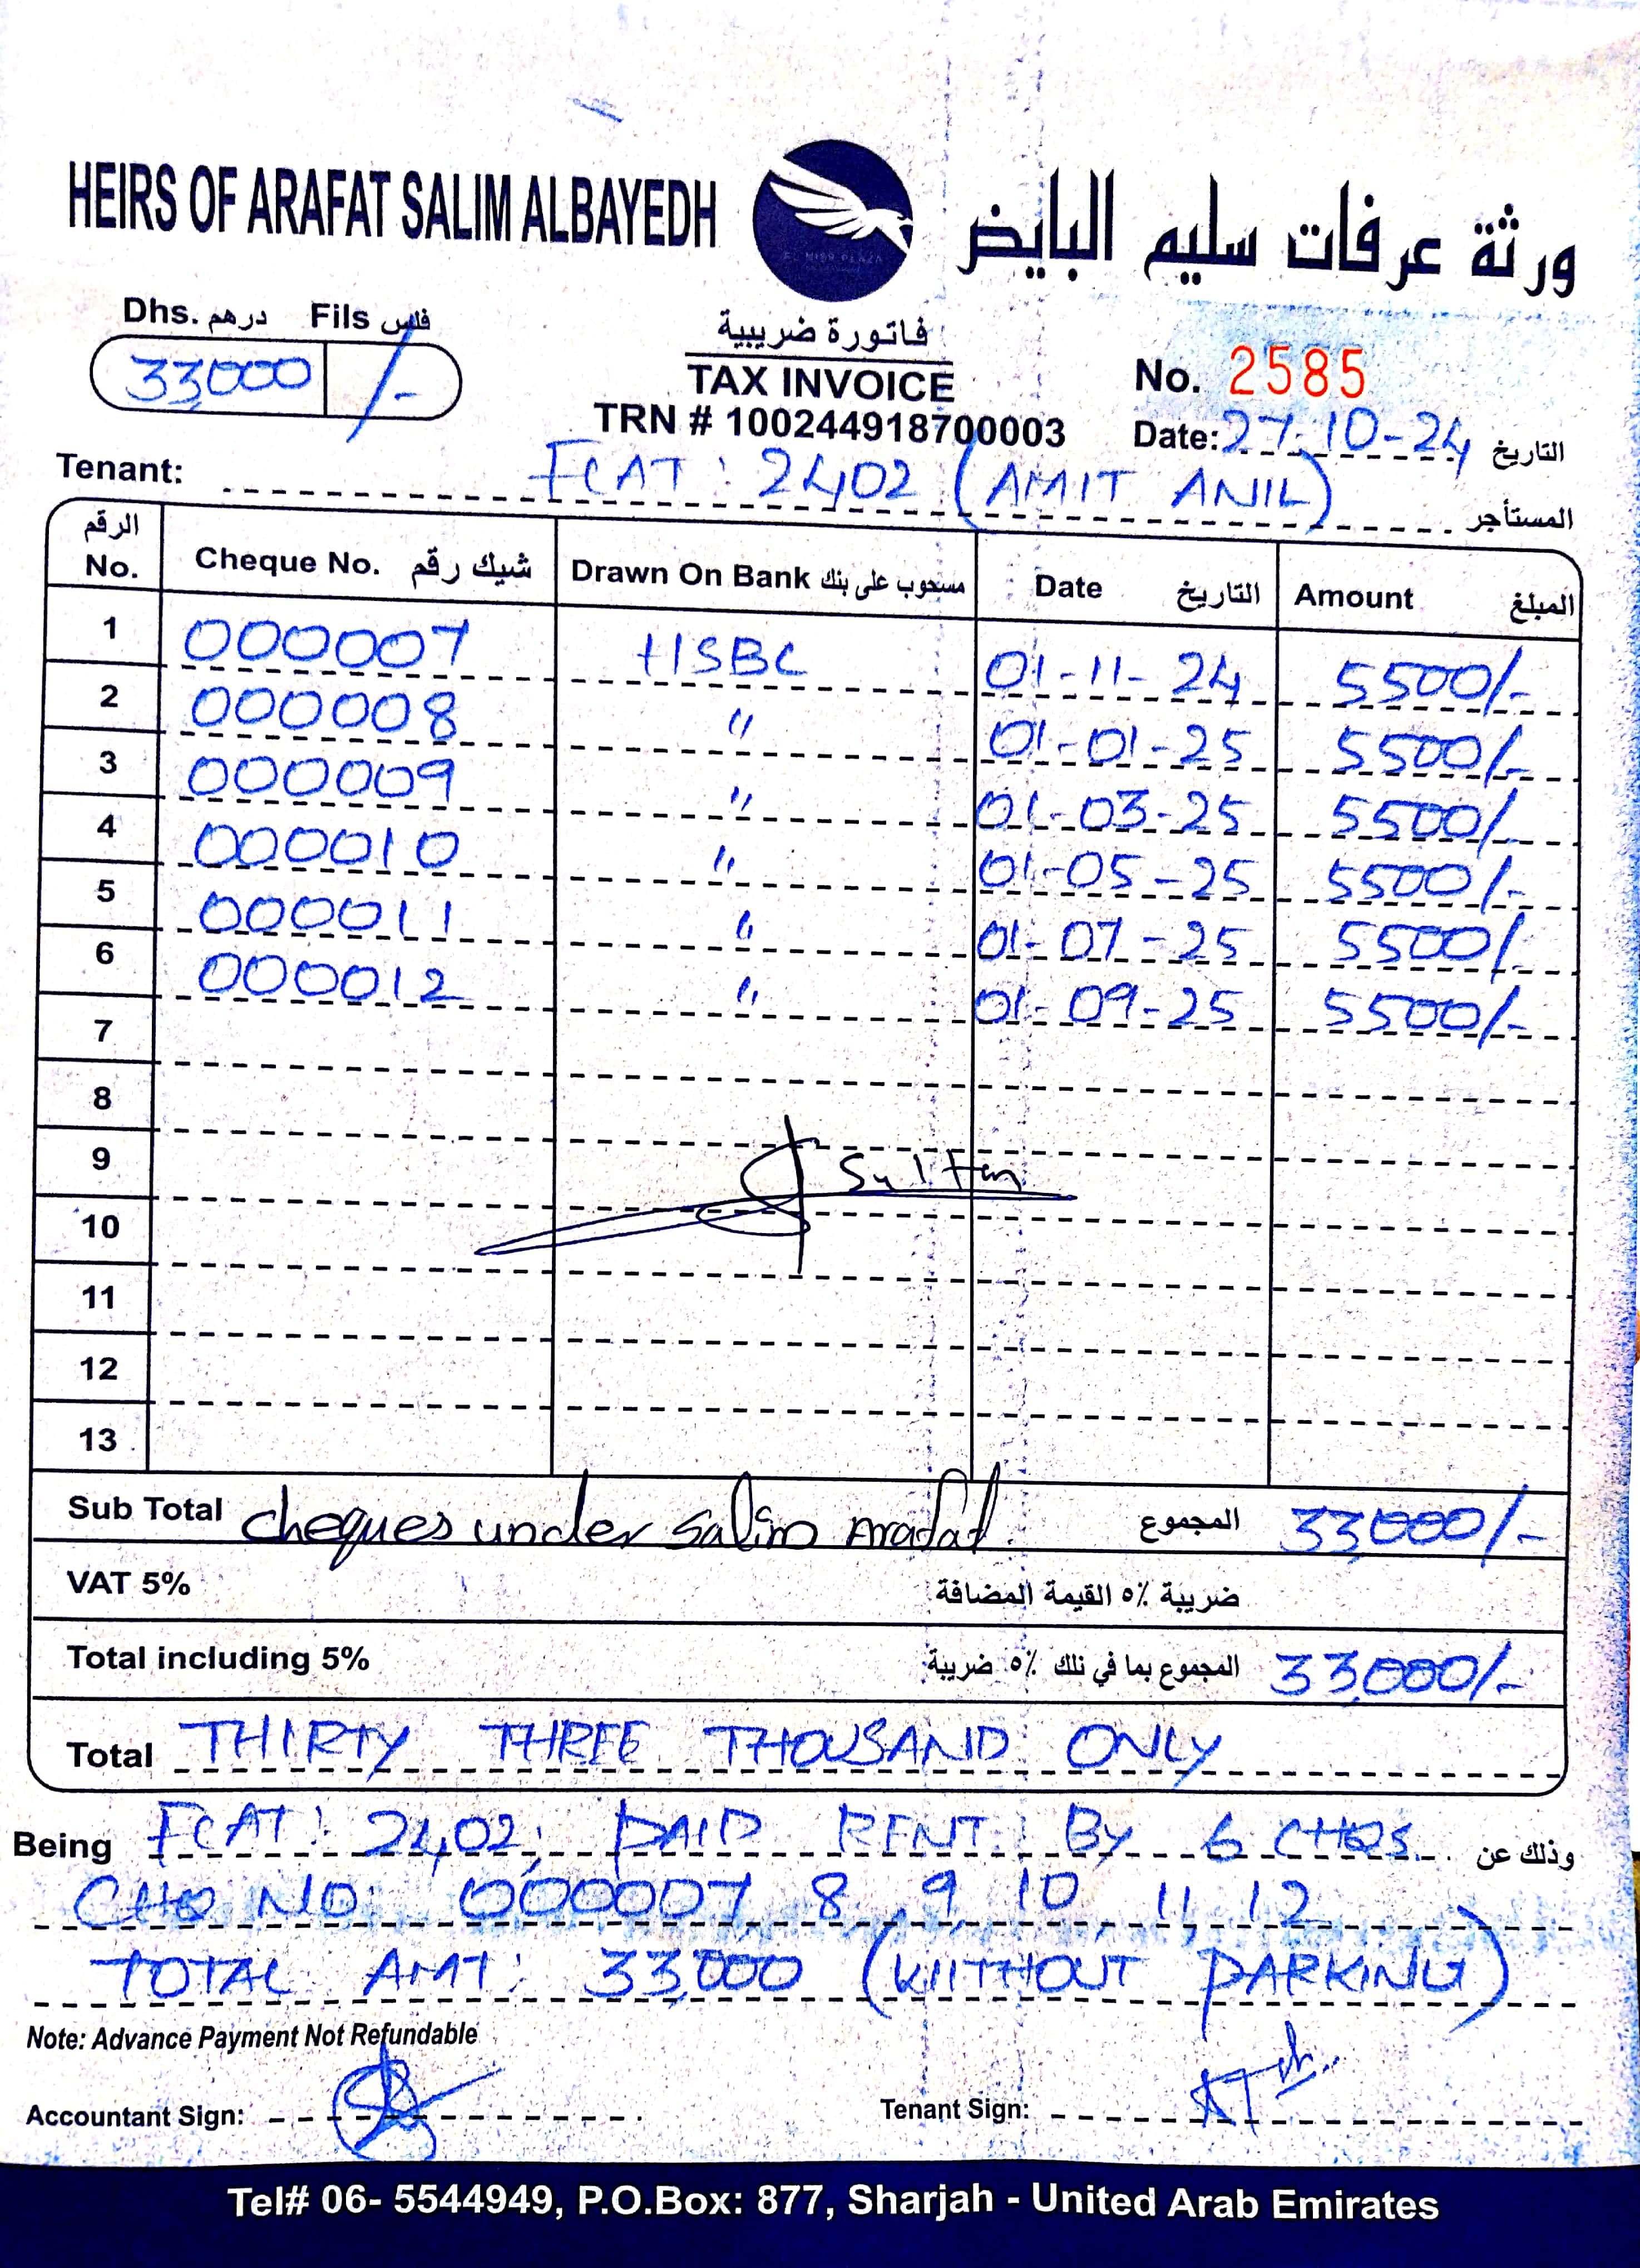 HEIRS OF ARAFAT SALIM ALBAYEDH
ورثة عرفات سليم البايض
EL NISR PLAZA
Dhs. درهم Fils فلس
33,000 /-
فاتورة ضريبية
TAX INVOICE
TRN # 100244918700003
No. 2585
Date: 27-10-24 التاريخ
Tenant: FLAT : 2402 (AMIT ANIL) المستأجر
الرقم No. Cheque No. شيك رقم Drawn On Bank مسحوب على بنك Date التاريخ Amount المبلغ
1 000007 HSBC 01-11-24 5500/-
2 000008 " 01-01-25 5500/-
3 000009 " 01-03-25 5500/-
4 000010 " 01-05-25 5500/-
5 000011 " 01-07-25 5500/-
6 000012 " 01-09-25 5500/-
7
8
9 Sultan
10
11
12
13
Sub Total cheques under Salim Arafat المجموع 33,000/-
VAT 5% ضريبة ٥٪ القيمة المضافة
Total including 5% المجموع بما في ذلك ٥٪ ضريبة 33,000/-
Total THIRTY THREE THOUSAND ONLY
Being FLAT: 2402, PAID RENT: By 6 CHQS. وذلك عن
CHQ NO: 000007, 8, 9, 10, 11, 12
TOTAL AMT: 33,000 (WITHOUT PARKING)
Note: Advance Payment Not Refundable
Accountant Sign: Tenant Sign:
Tel# 06- 5544949, P.O.Box: 877, Sharjah - United Arab Emirates